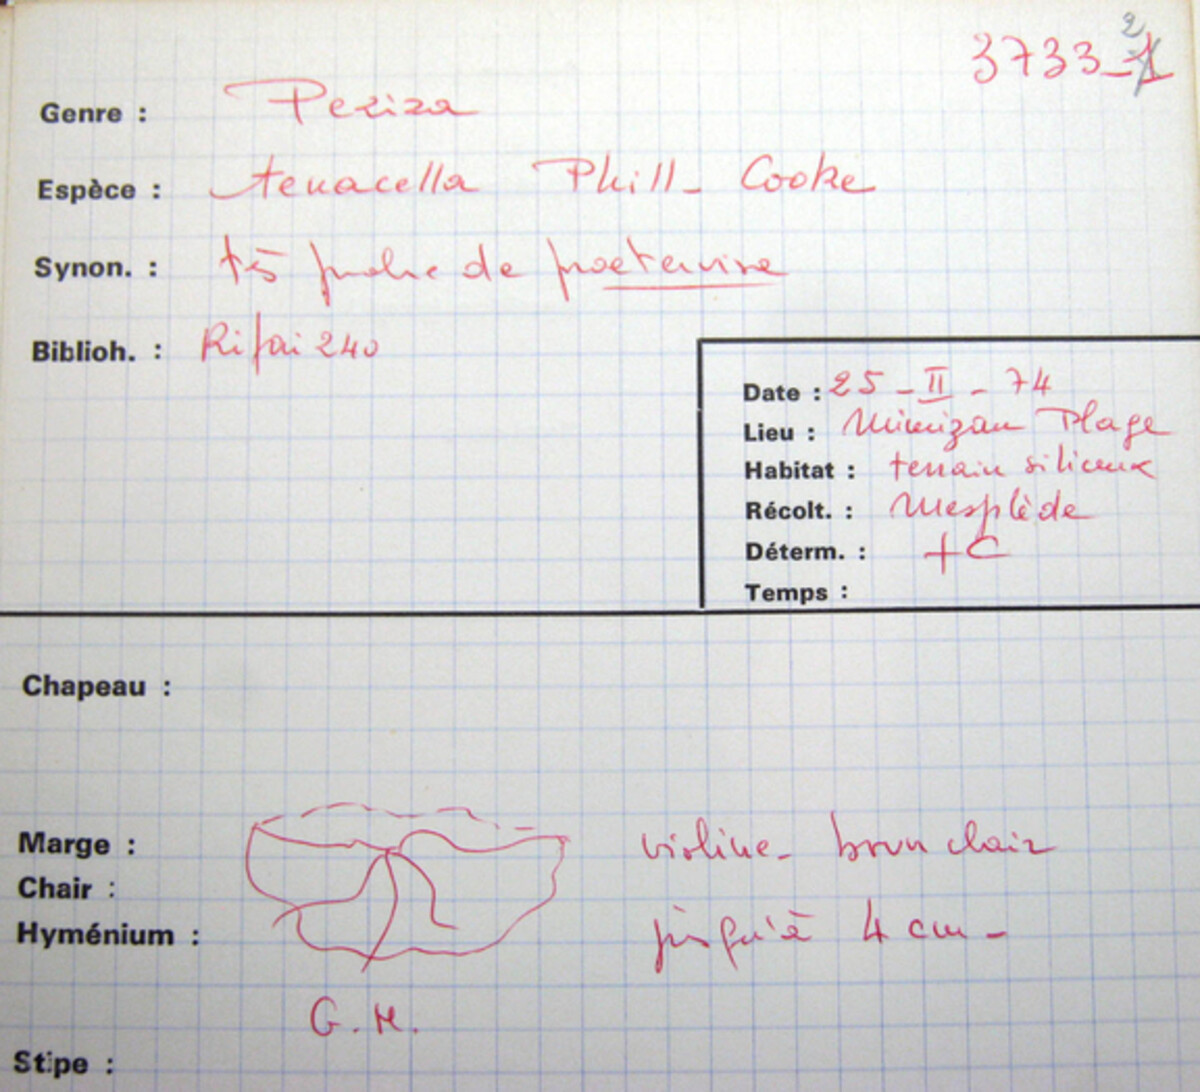 3733-2
Genre : Peziza
Espèce : tenacella Phill- Cooke
Synon. : ts proche de praetervisa
Biblioh. : Rifai 240
Date : 25 - II - 74
Lieu : Mimizan Plage
Habitat : terrain siliceux
Récolt. : Mesplède
Déterm. : + C
Temps :
Chapeau :
Marge : violine - brun clair
Chair :
Hyménium : jusqu'à 4 cm -
G. M.
Stipe :